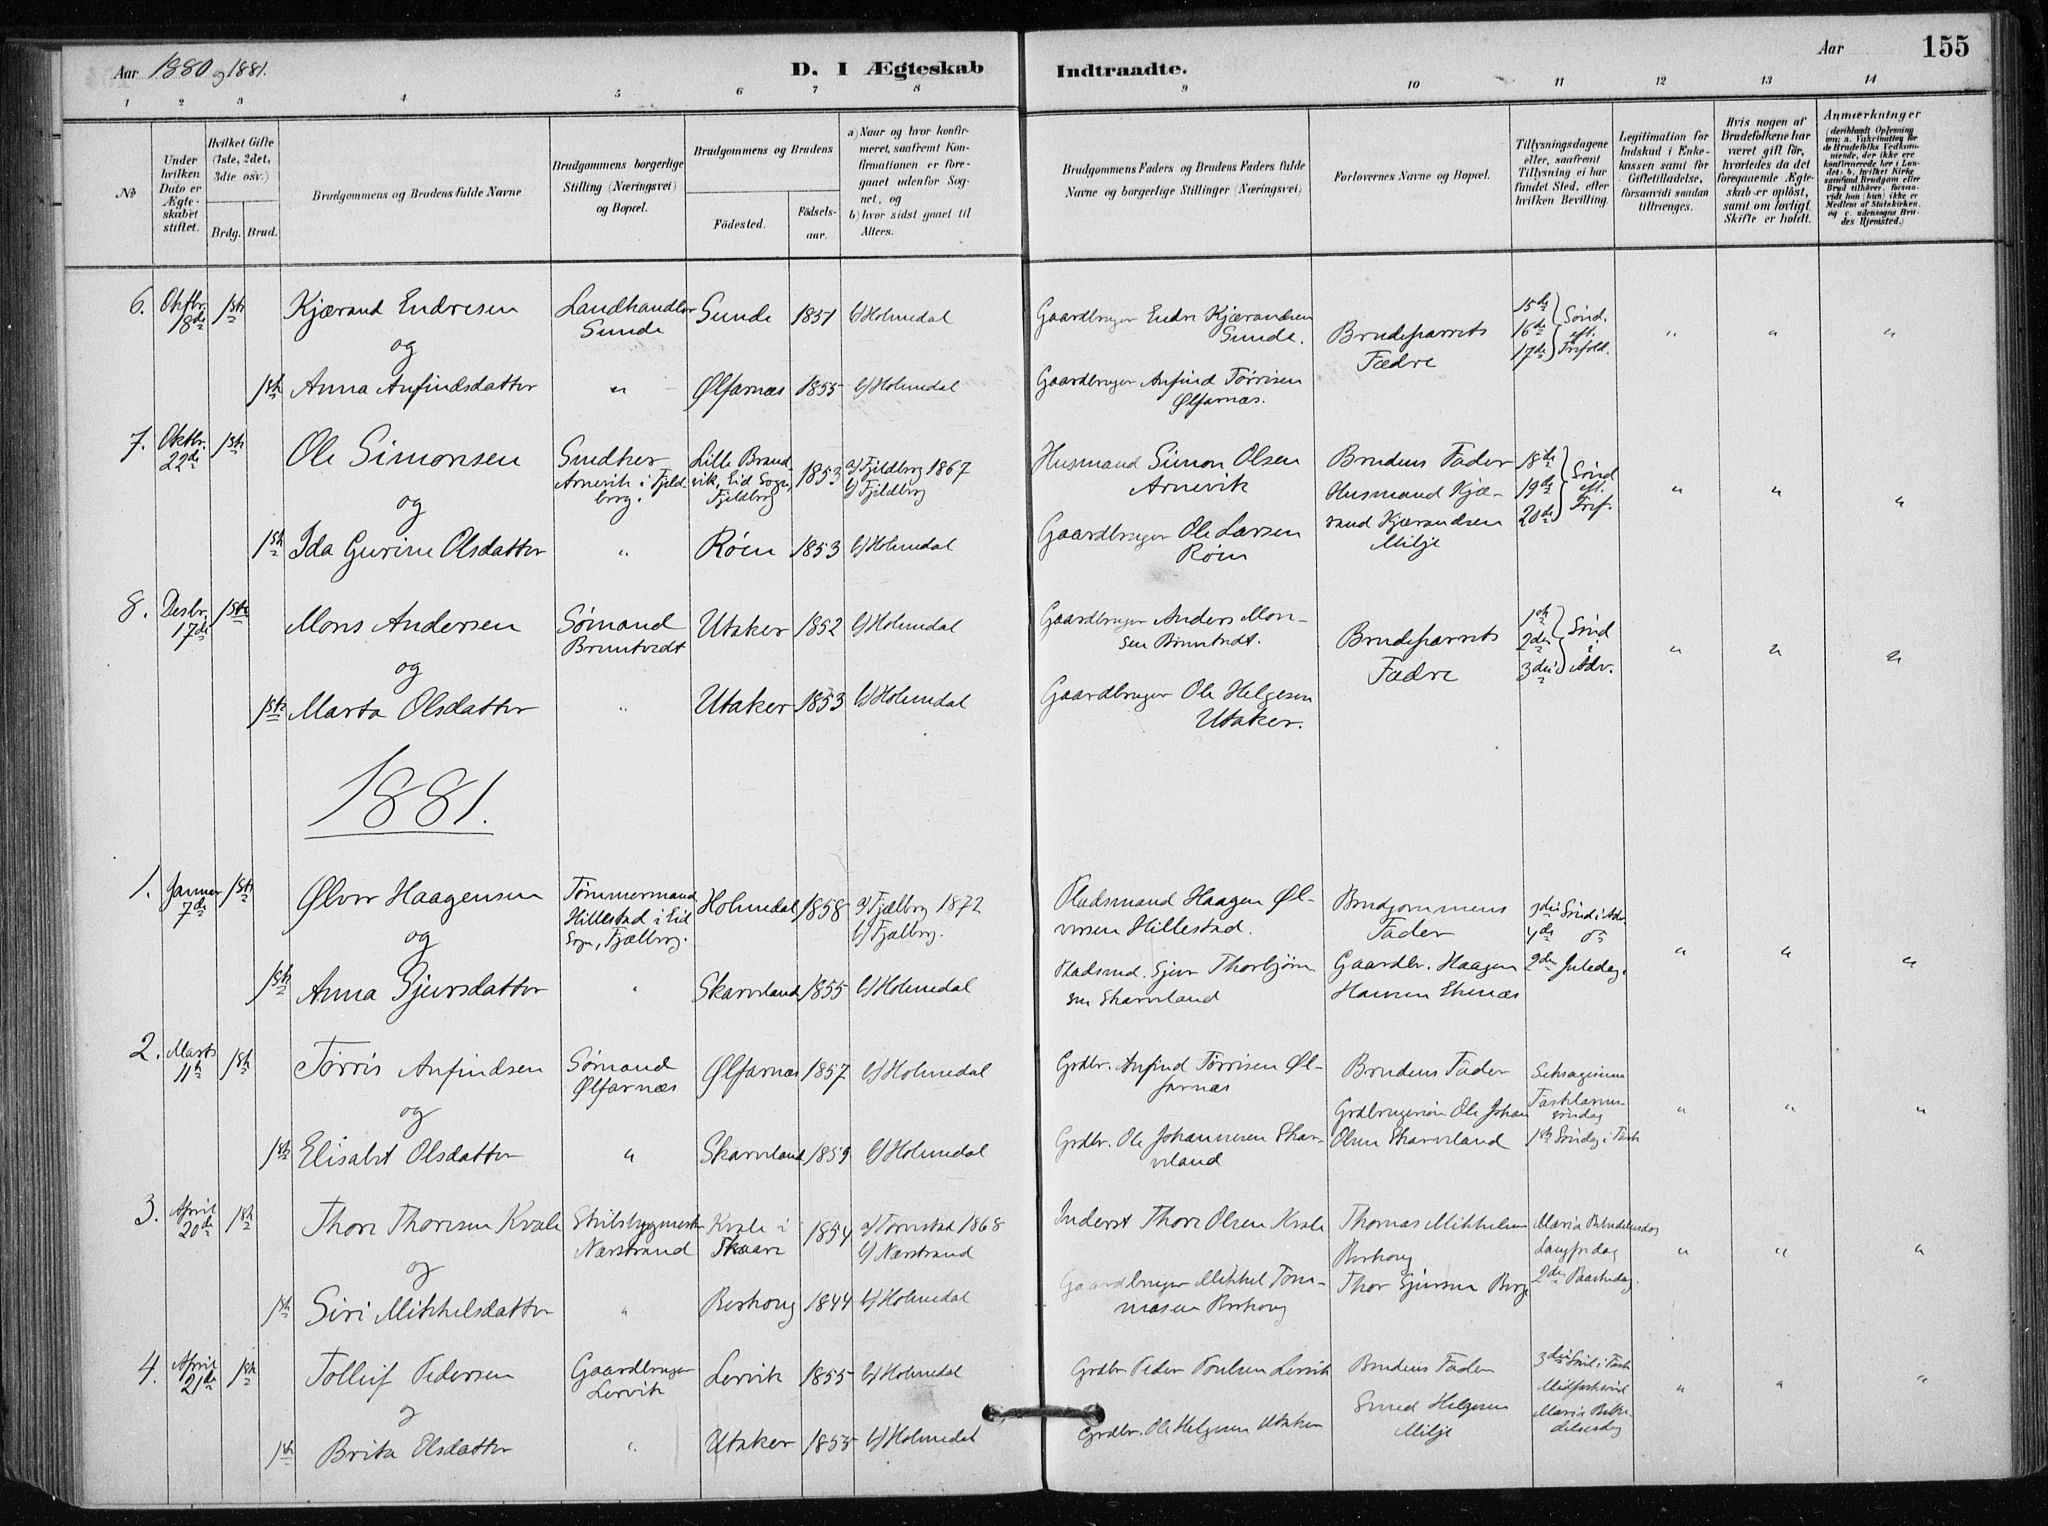 Aar 1880 og 1881.
D. I Ægteskab
Indtraadte.
Aar
155
1 2 3 4 5 6 7 8 9 10 11 12 13 14
No
Under hvilken Dato er Ægteskabet stiftet.
Hvilket Gifte (1ste, 2det, 3die osv.)
Brdg. Brud.
Brudgommens og Brudens fulde Navne
Brudgommens borgerlige Stilling (Næringsvei) og Bopæl.
Brudgommens og Brudens
Fødested.
Fødselsaar.
a) Naar og hvor konfirmeret, saafremt Konfirmationen er foregaaet udenfor Sognet, og
b) hvor sidst gaaet til Alters.
Brudgommens Faders og Brudens Faders fulde Navne og borgerlige Stillinger (Næringsvei)
Forlovernes Navne og Bopæl.
Tillysningsdagene eller, saafremt Tillysning ei har fundet Sted, efter hvilken Bevilling.
Legitimation for Indskud i Enkekassen samt for Giftetilladelse, forsaavidt saadan tiltrænges.
Hvis nogen af Brudefolkene har været gift før, hvorledes da det foregaaende Ægteskab er opløst, samt om lovligt Skifte er holdt.
Anmærkninger
(deriblandt Oplysning om: a. Vaksination for de Brudefolks Vedkommende, der ikke ere konfirmerede her i Landet; b. hvilket Kirkesamfund Brudgom eller Brud tilhører, forsaavidt han (hun) ikke er Medlem af Statskirken, og c. udensogns Brudes Hjemsted.)
6. Oktbr. 18de 1ste Kjærand Endresen Landhandler Sunde Sunde 1851 b) Holmedal Gaardbruger Endre Kjærandsen Sunde. Brudeparrets Fædre 15de 16de 17de Sønd. eft. Trefold. " " "
og
1ste Anna Anfindsdatter " Ølfarnæs 1855 b) Holmedal Gaardbruger Anfind Tørrisen Ølfarnæs.
7. Oktbr. 22de 1ste Ole Simonsen Snedker Arnevik i Fjeldborg. Lille Brandvik, Eid Sogn, Fjeldborg 1853 a) Fjeldborg 1867 b) Fjeldborg Husmand Simon Olsen Arnevik Brudens Fader Husmand Kjærand Kjærandsen Milje 18de 19de 20de Sønd eft. Tref. " " "
og
1ste Ida Gurine Olsdatter " Røen 1853 b) Holmedal Gaardbruger Ole Larsen Røen
8. Desbr. 17de 1ste Mons Andersen Sømand Bruntvedt Utaker 1852 b) Holmedal Gaardbruger Anders Monsen Bruntvedt. Brudeparrets Fædre 1ste 2den 3die Sønd i Adv. " " "
og
1ste Marta Olsdatter " Utaker 1853 b) Holmedal Gaardbruger Ole Helgesen Utaker.
1881.
1. Januar 7de 1ste Ølver Haagensen Tømmermand Hillestad i Eid Sogn, Fjælborg. Holmedal 1858 a) Fjælborg 1872 b) Fjælborg. Pladsmand Haagen Ølversen Hillestad. Brudgommens Fader 3die Sønd i Adv 4de do
og
1ste Anna Sjursdatter " Skarveland 1855 b) Holmedal Pladsmd. Sjur Thorbjørnsen Skarveland Gaardbr. Haagen Hansen Ekenæs 2den Juledag. " " "
2. Marts 11te 1ste Tørris Anfindsen Sømand Ølfarnæs Ølfarnæs 1857 b) Holmedal Grdbr. Anfind Tørrisen Ølfarnæs Brudens Fader Seksagesima Fastelavnssøndag
og
1ste Elisabet Olsdatter " Skarveland 1859 b) Holmedal Grdbr. Ole Johannesen Skarveland Ole Johan Olsen Skarveland 1ste Søndag i Fast " " "
3. April 20de 1ste Thore Thoresen Kvale Skibsbygmester Nærstrand Kvale i Skaare 1854 a) Torvestad 1868 b) Nærstrand Inderst Thore Olsen Kvale Thomas Mikkelsen Berhoug Maria Bebudelsesdag Langfredag 2den Paaskedag. " " "
og
1ste Siri Mikkelsdatter " Berhoug 1844 b) Holmedal Gaardbruger Mikkel Tommasen Berhoug Thor Sjursen Berge
4. April 21de 1ste Tolleif Pedersen Gaardbruger Lervik Lervik 1855 b) Holmedal Grdbr Peder Poulsen Lervik Brudens Fader 3die Sønd i Fast Midfastesønd Maria Bebudelsesdag " " "
og
1ste Brita Olsdatter " Utaker 1855 b) Holmedal Grdbr. Ole Helgesen Utaker Helgesen Milje